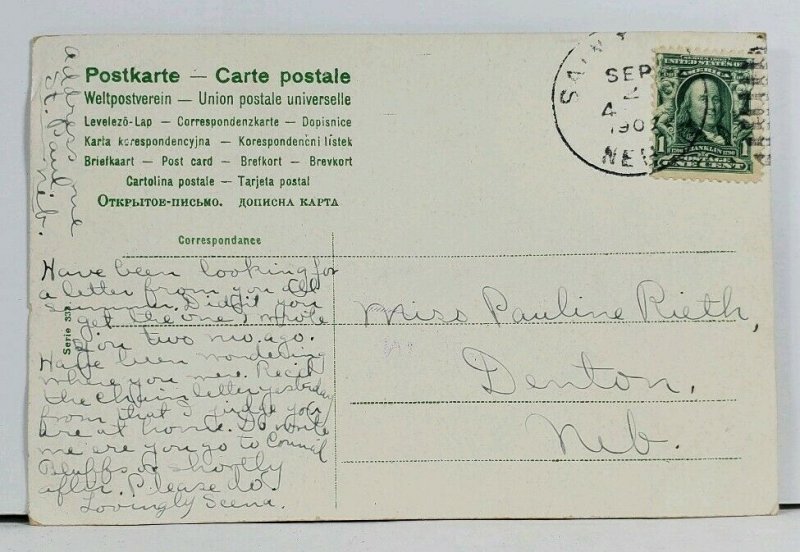 Postkarte — Carte postale
Weltpostverein — Union postale universelle
Levelező-Lap — Correspondenzkarte — Dopisnice
Karta korespondencyjna — Korespondenční lístek
Briefkaart — Post card — Brefkort — Brevkort
Cartolina postale — Tarjeta postal
Открытое-письмо. дописна карта
Correspondance
Address me
St. Paul.
Neb.
Have been looking for
a letter from you all
summer. Didn't you
get the one I wrote
you two mo. ago.
Have been wondering
where you were. Rec'd
the chain letter yesterday
from that I judge you
are at home. Do write
me ere you go to Council
Bluffs or shortly
after. Please do.
Lovingly Seena.
Serie 333
SEP
2
4
190
NEB
UNITED STATES OF
AMERICA
FRANKLIN
1 POSTAGE 1
ONE CENT
Miss Pauline Rieth,
Denton,
Neb.